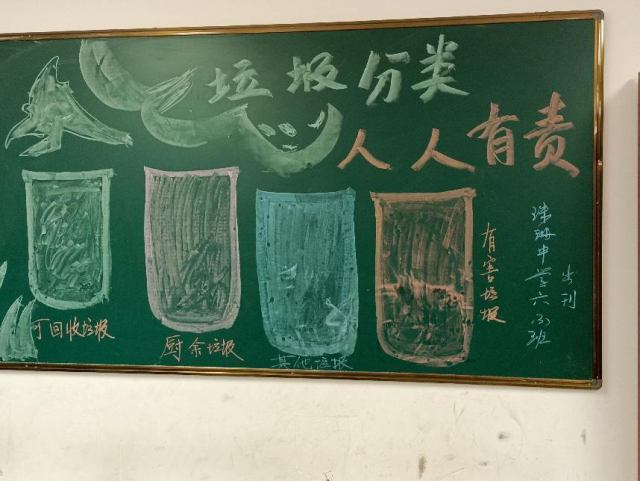 垃圾分类
人人有责
可回收垃圾
厨余垃圾
其他垃圾
有害垃圾
中学六
班
刊